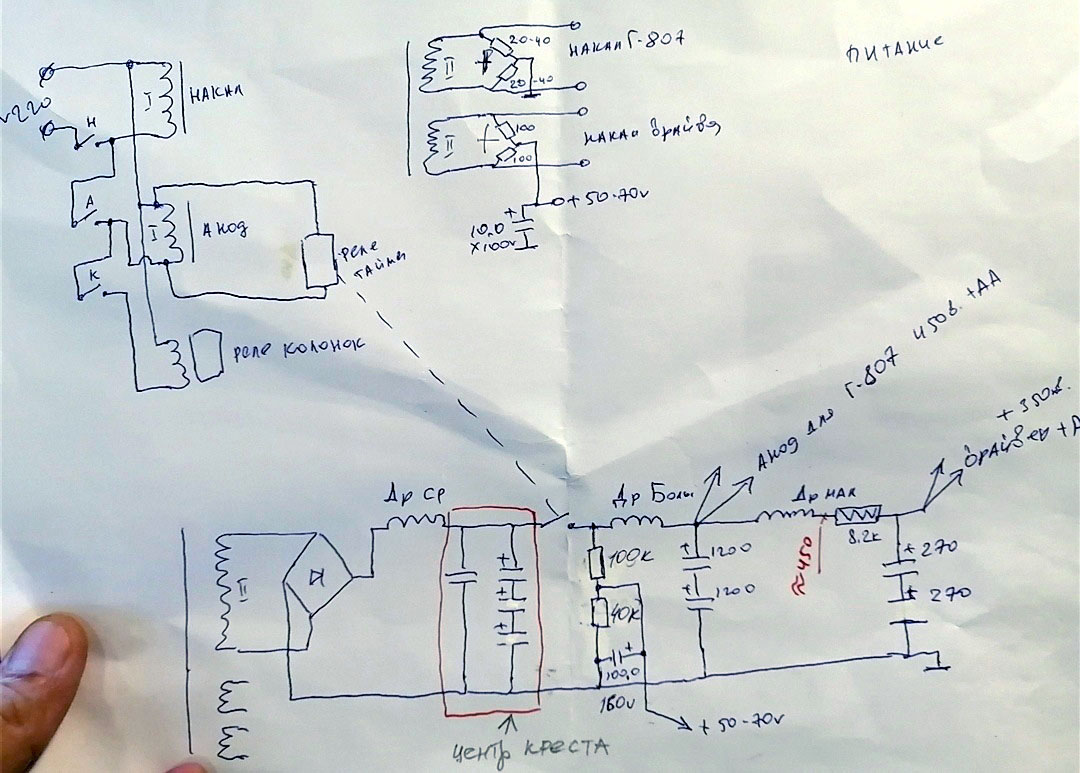 ПИТАНИЕ
~220
Н
I
НАКАЛ
А
I
АНОД
К
реле
тайм
реле колонок
II
20-40
20-40
НАКАЛ Г-807
II
100
100
НАКАЛ драйвя
+
10,0
х100v
+ 50-70v
Др Ср
Др Больш
Анод для Г-807 450в. +АА
Др мал
+ 350в.
драйвер +А
8.2к
≈450
II
+
+
+
100к
40к
+
100,0
160v
+ 50-70v
+ 1200
+ 1200
+ 270
+ 270
центр креста